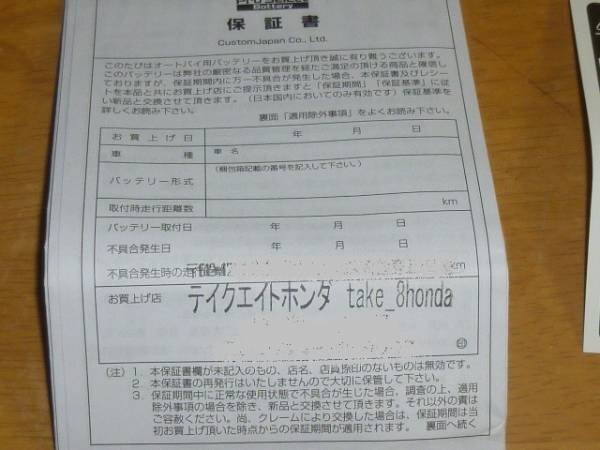 Pro Select
Battery
保証書
CustomJapan Co., Ltd.
このたびはオートバイ用バッテリーをお買上げ頂き誠に有り難うございます。
このバッテリーは弊社の厳密なる品質管理を経たご満足の頂ける商品と確信し
ておりますが、保証期間内に万一不具合が発生した場合、本保証書及びレシー
トを本品と共にお買上げ店にご提示頂きますと「保証期間」「保証基準」に従
い新品と交換させて頂きます。(日本国内においてのみ有効です) 保証基準を
詳しくお読み下さい。
裏面「適用除外事項」をよくお読み下さい。
お買上げ日 年 月 日
車種 車名
バッテリー形式 (梱包箱記載の番号を記入して下さい。)
取付時走行距離数 km
バッテリー取付日 年 月 日
不具合発生日 年 月 日
不具合発生時の走 km
お買上げ店 テイクエイトホンダ take_8honda
印
(注) 1. 本保証書欄が未記入のもの、店名、店員捺印のないものは無効です。
2. 本保証書の再発行はいたしませんので大切に保管して下さい。
3. 保証期間中に正常な使用状態で不具合が生じた場合、調査の上、適用
除外事項の場合を除き、新品と交換させて頂きます。それ以外の責は
ご容赦ください。尚、クレームにより交換した場合は、保証期間は当
初お買上げ頂いた時点からの保証期間が適用されます。 裏面へ続く